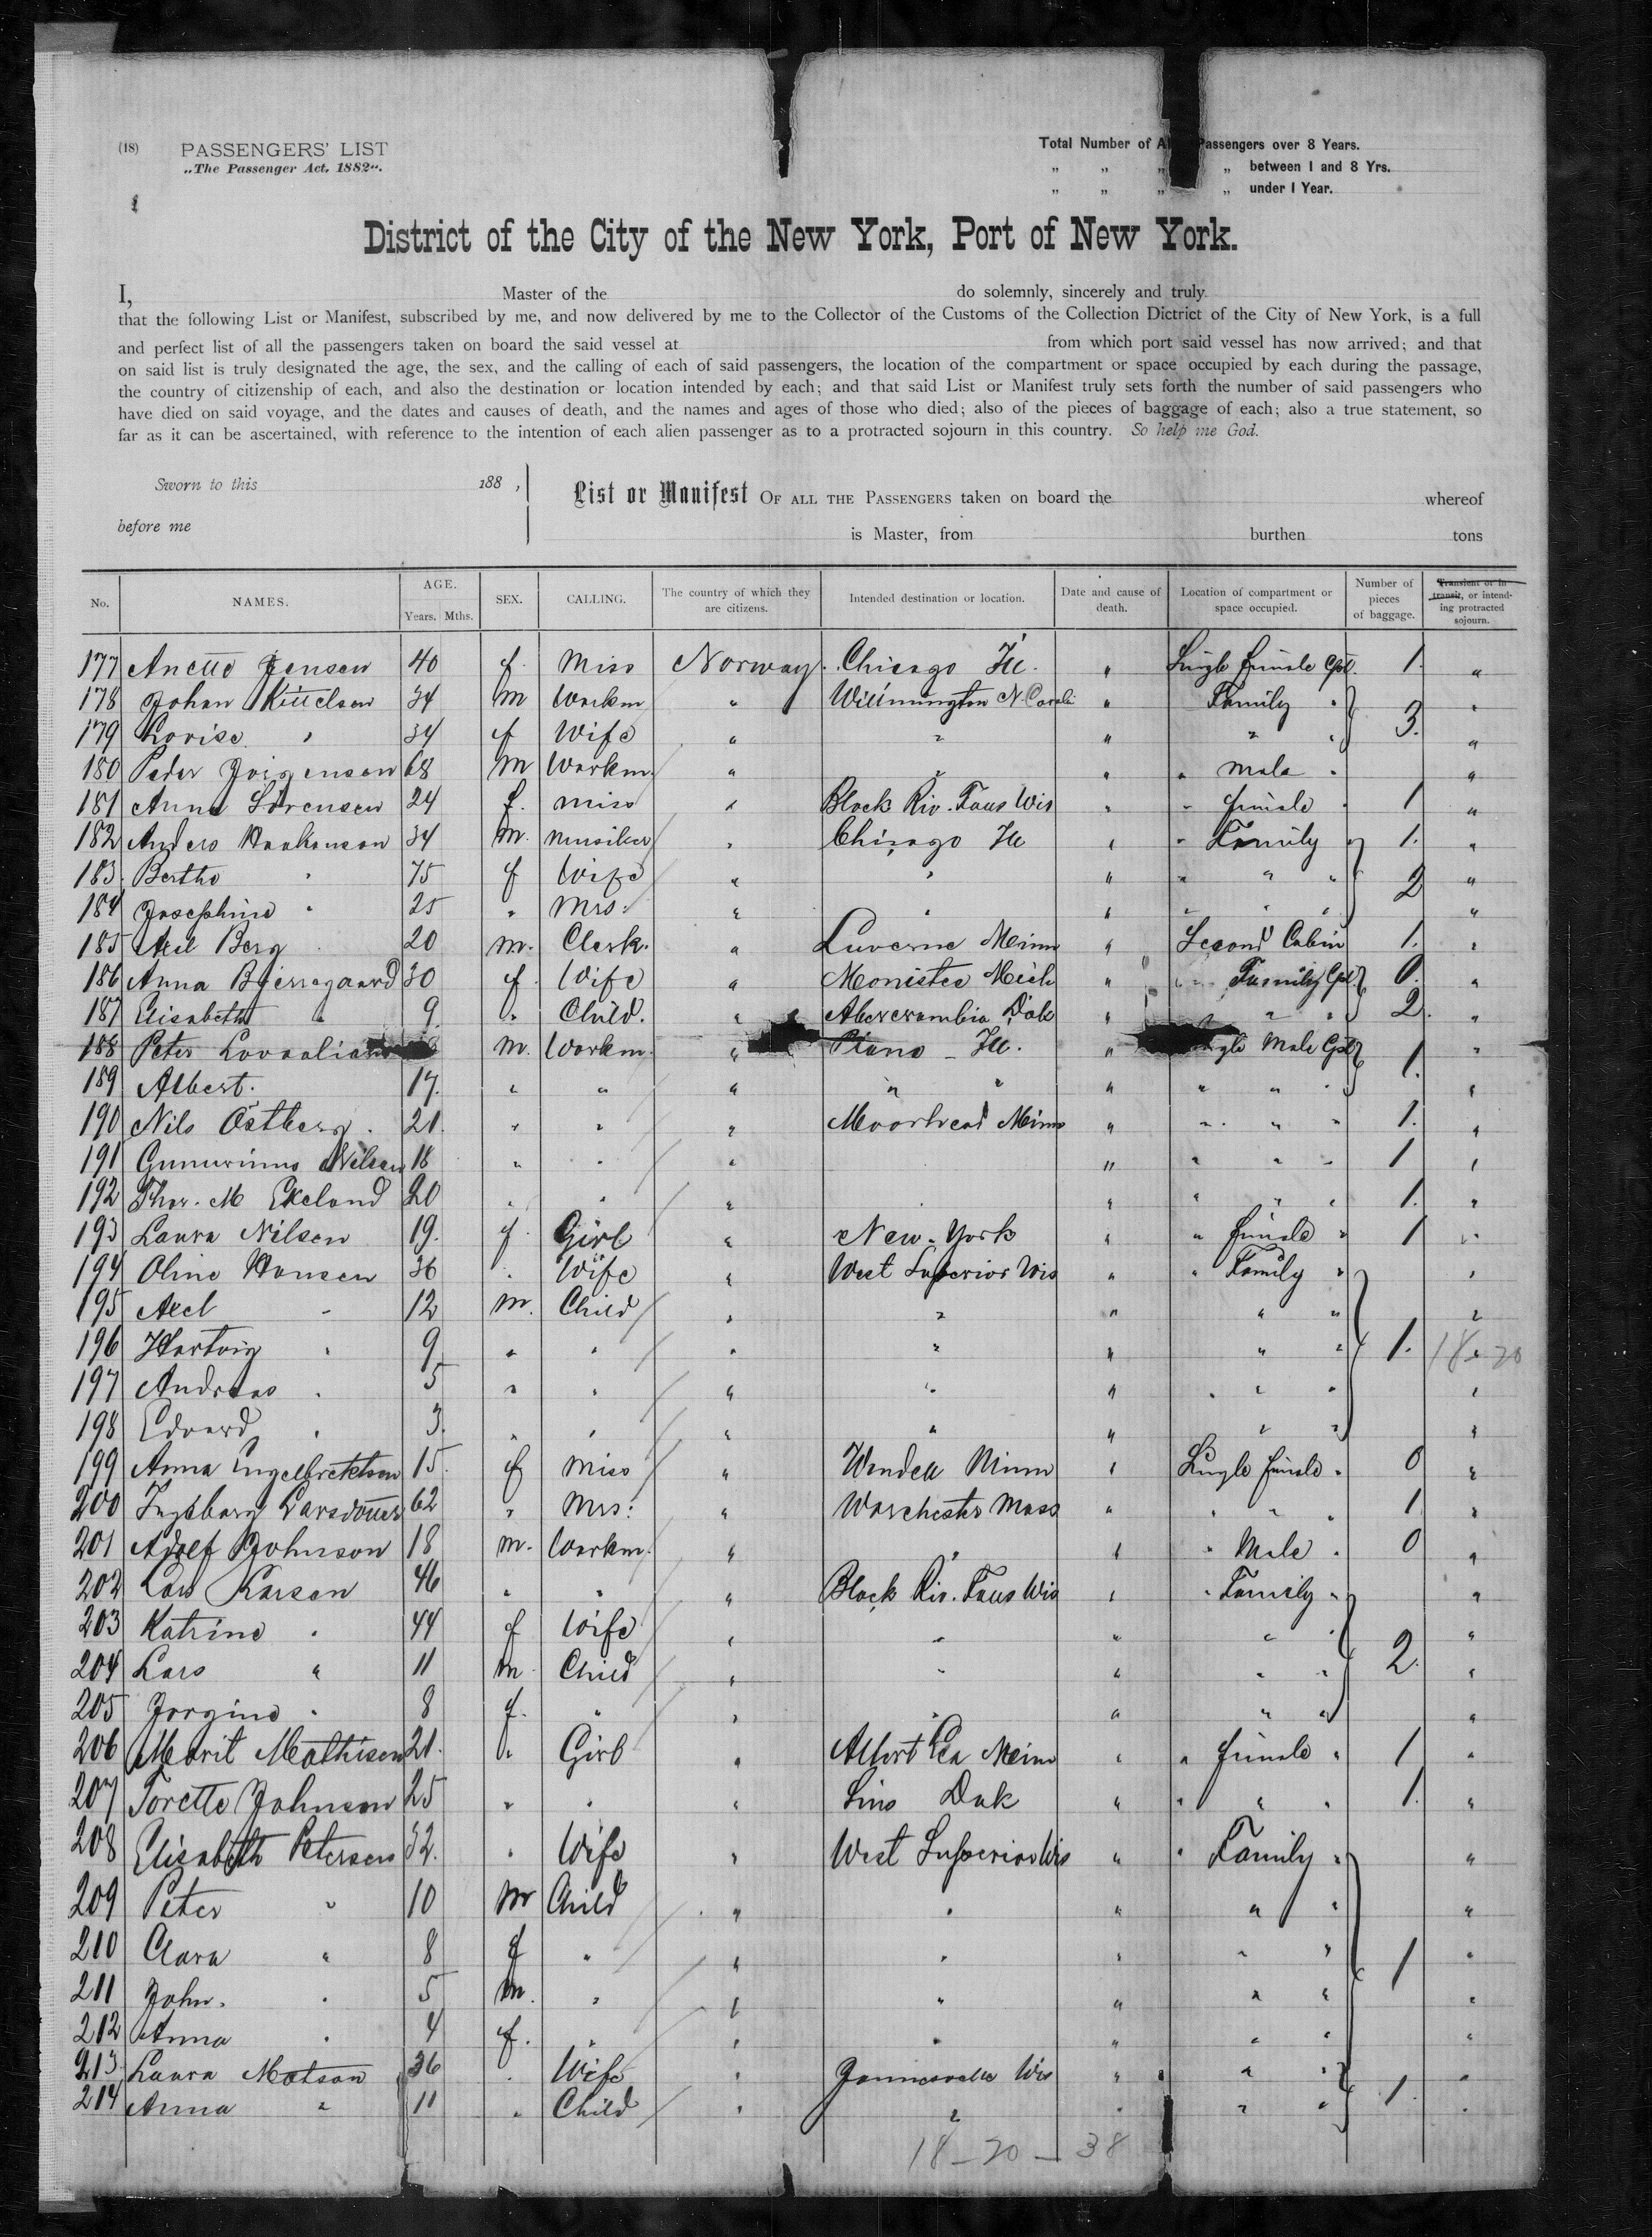 (18) PASSENGERS' LIST
„The Passenger Act, 1882“.
Total Number of Al Passengers over 8 Years.
„ „ „ „ between 1 and 8 Yrs.
„ „ „ „ under 1 Year.
District of the City of the New York, Port of New York.
I, Master of the do solemnly, sincerely and truly
that the following List or Manifest, subscribed by me, and now delivered by me to the Collector of the Customs of the Collection District of the City of New York, is a full
and perfect list of all the passengers taken on board the said vessel at from which port said vessel has now arrived; and that
on said list is truly designated the age, the sex, and the calling of each of said passengers, the location of the compartment or space occupied by each during the passage,
the country of citizenship of each, and also the destination or location intended by each; and that said List or Manifest truly sets forth the number of said passengers who
have died on said voyage, and the dates and causes of death, and the names and ages of those who died; also of the pieces of baggage of each; also a true statement, so
far as it can be ascertained, with reference to the intention of each alien passenger as to a protracted sojourn in this country. So help me God.
Sworn to this 188 ,
before me
List or Manifest OF ALL THE PASSENGERS taken on board the whereof
is Master, from burthen tons
No. NAMES. AGE. Years. Mths. SEX. CALLING. The country of which they are citizens. Intended destination or location. Date and cause of death. Location of compartment or space occupied. Number of pieces of baggage. Transient or in transit, or intending protracted sojourn.
177 Anette Jensen 40 f. Miss Norway. Chicago Ill. " Single female Cpt. 1. "
178 Johan Kittelsen 34 m Workm " Willmington N. Caroli " Family " "
179 Lovise " 34 f Wife " " " " " 3. "
180 Peder Jörgensen 68 m Workm. " " " " male " "
181 Anna Sörensen 24 f. miss " Black Riv. Faus Wis " " female " 1 "
182 Anders Haakonson 34 m. musiker " Chicago Ill " " Family " 1. "
183. Berthe " 75 f Wife " " " " " " 2 "
184 Josephine " 25 " Mrs. " " " " " " "
185 Axel Berg 20 m. Clerk. " Luverne Minn " Second Cabin 1. "
186 Anna Bjerregaard 30 f. Wife " Monistee Mich " " Family Cpt. 0. "
187 Elisabeth " 9. " Child. " Abercrombia Dak " " " " 2. "
188 Peter m. Workm. " Plano - Ill. " Male Cpt "
189 Albert. 17. " " " " " " " " " 1. "
190 Nils Östberg. 21. " " " Moorhead Minn " " " " 1. "
191 Nilsen 18 " " " " " " " 1 "
192 Thor. M Ekeland 20 " " " " " " " " 1. "
193 Laura Nilsen 19. f. Girl " New-York " " female " 1 "
194 Oline Hansen 36 " Wife " West Superior Wis " " Family " "
195 Axel " 12 m. Child " " " " " "
196 Hartvig " 9 " " " " " " " 1. 18-20
197 Andreas " 5 " " " " " " " " "
198 Edvard " 3. " " " " " " " "
199 Anna Engelbrektson 15. f Miss " Wendell Minn " Single female " 0 "
200 Ingeborg Larsdotter 62 " Mrs: " Worchester Mass " " " " 1 "
201 Adolf Johnson 18 m. Workm. " " " " Male " 0 "
202 Lars Larsen 46 " " " Black Riv. Faus Wis " " Family " "
203 Katrine " 44 f Wife " " " " " "
204 Lars " 11 m. Child " " " " " 2. "
205 Jorgine " 8 f. " " " " " " "
206 Marit Mathisen 21. " Girl " Albert Lea Minn " " female " 1 "
207 Torette Johnson 25 " " " Dak " " " " 1. "
208 Elisabeth Petersen 32. " Wife " West Superior Wis " " Family " "
209 Peter " 10 m Child " " " " " "
210 Clara " 8 f " " " " " " 1 "
211 John. " 5 m. " " " " " " "
212 Anna " 4 f. " " " " " " "
213. Laura Matson 36 " Wife " Wis " " " "
214 Anna " 11 " Child " " " " " 1. "
18 - 20 - 38